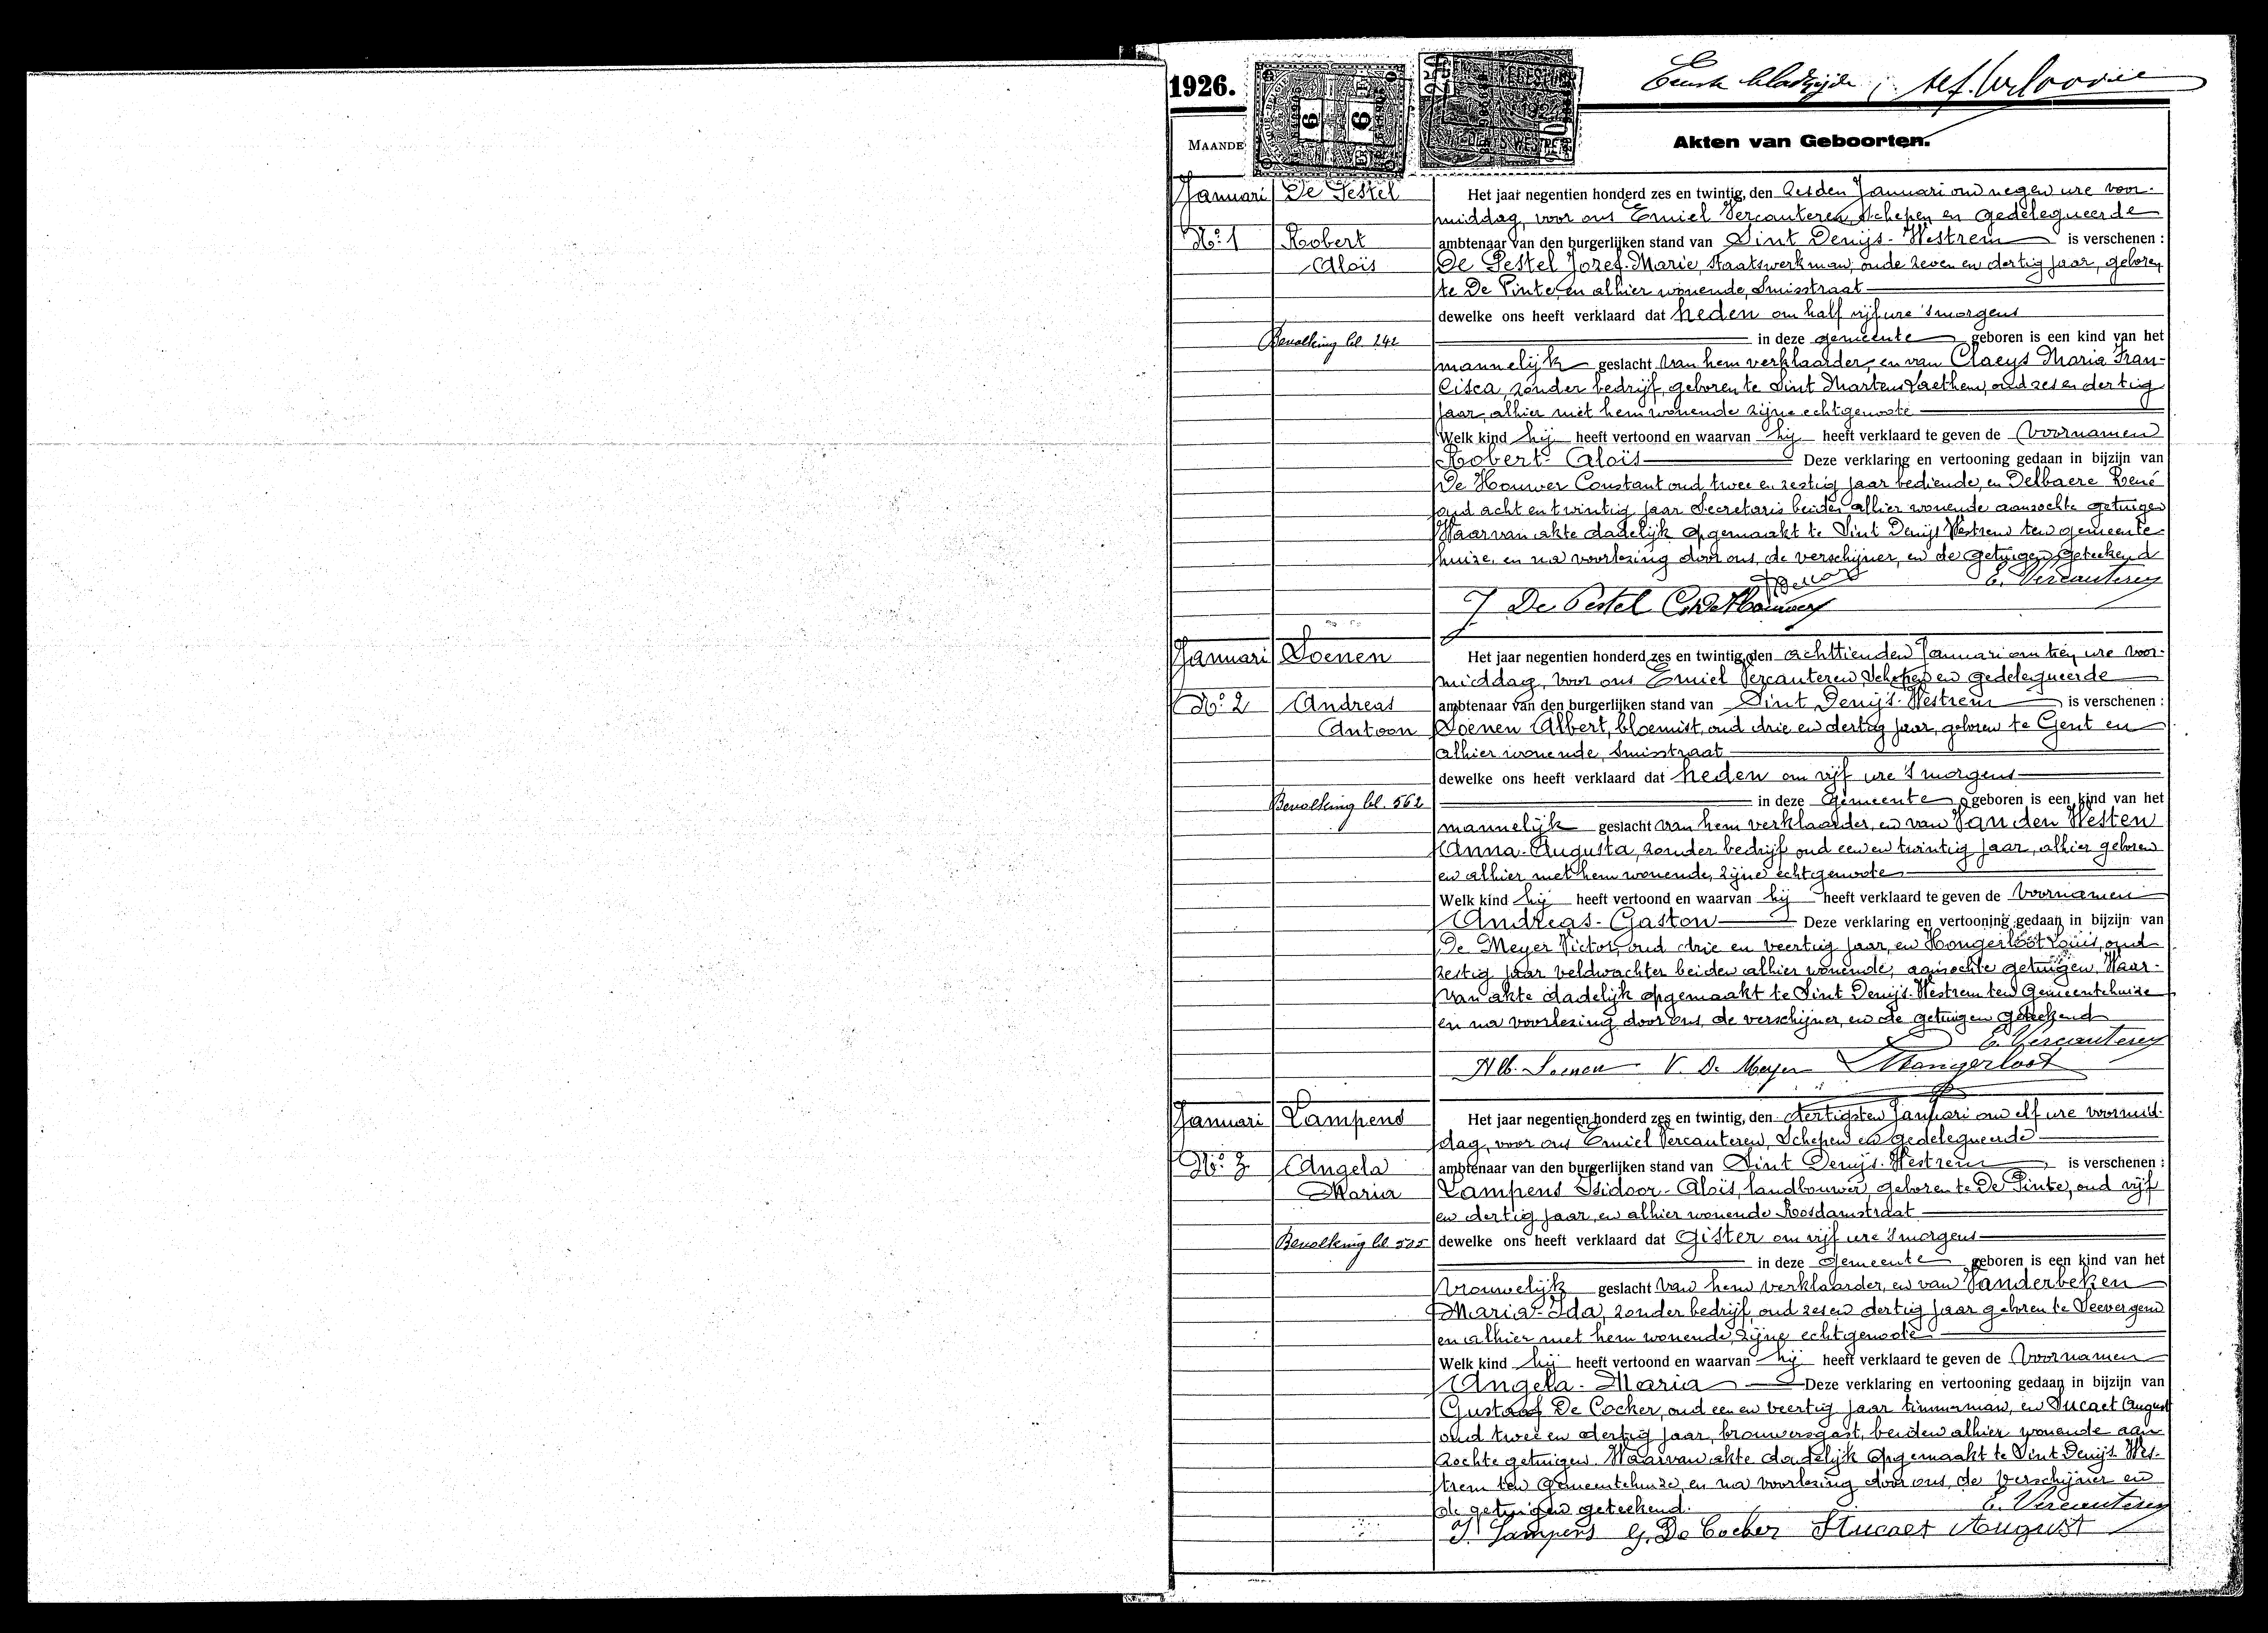 1926.
Eerste bladzijde
MAANDE
Akten van Geboorten.
Januari De Pestel Het jaar negentien honderd zes en twintig, den Zesden Januari om negen ure voor-
middag, voor ons Emiel Vercauteren, Schepen en gedelegueerde
No. 1 Robert ambtenaar van den burgerlijken stand van Sint Denijs-Westrem is verschenen :
Aloïs De Pestel Jozef-Marie, Staatswerkman, oude zeven en dertig jaar, geboren
te De Pinte, en alhier wonende, Smisstraat
dewelke ons heeft verklaard dat heden om half vijf ure 's morgens
Bevolking bl. 242 in deze gemeente geboren is een kind van het
mannelijk geslacht van hem verklaarder, en van Claeys Maria Fran-
cisca, zonder bedrijf, geboren te Sint Martens Laethem, oud zes en dertig
jaar alhier met hem wonende zijne echtgenoote
Welk kind hij heeft vertoond en waarvan hij heeft verklaard te geven de voornamen
Robert-Aloïs Deze verklaring en vertooning gedaan in bijzijn van
De Houwer Constant oud twee en zestig jaar bediende, en Delbaere René
oud acht en twintig jaar Secretaris beiden alhier wonende aanzochte getuigen
Waarvan akte dadelijk opgemaakt te Sint Denijs Westrem ten gemeente-
huize, en na voorlezing door ons, de verschijner, en de getuigen, geteekend
E. Vercauteren
J De Pestel C. De Houwer
Januari Soenen Het jaar negentien honderd zes en twintig, den achttienden Januari om tien ure voor-
middag, voor ons Emiel Vercauteren, Schepen en gedelegueerde
No. 2 Andreas ambtenaar van den burgerlijken stand van Sint Denijs-Westrem is verschenen :
Antoon Soenen Albert, bloemist, oud drie en dertig jaar, geboren te Gent en
alhier wonende, Smisstraat
dewelke ons heeft verklaard dat heden om vijf ure 's morgens
Bevolking bl. 562 in deze Gemeente geboren is een kind van het
mannelijk geslacht van hem verklaarder, en van Van den Westen
Anna-Augusta, zonder bedrijf oud een en twintig jaar, alhier geboren
en alhier met hem wonende, zijne echtgenoote
Welk kind hij heeft vertoond en waarvan hij heeft verklaard te geven de voornamen
Andreas-Gaston Deze verklaring en vertooning gedaan in bijzijn van
De Meyer Victor, oud drie en veertig jaar, en Hongerloot Louis, oud
zestig jaar veldwachter beiden alhier wonende, aanzochte getuigen. Waar-
van akte dadelijk opgemaakt te Sint Denijs-Westrem ten Gemeentehuize
en na voorlezing door ons, de verschijner, en de getuigen geteekend
E. Vercauteren
Alb. Soenen V. De Meyer Hongerloot
Januari Lampens Het jaar negentien honderd zes en twintig, den dertigsten Januari om elf ure voormid-
dag, voor ons Emiel Vercauteren, Schepen en gedelegueerde
No. 3 Angela ambtenaar van den burgerlijken stand van Sint Denijs-Westrem is verschenen :
Maria Lampens Isidoor-Aloïs, landbouwer, geboren te De Pinte, oud vijf
en dertig jaar, en alhier wonende Rosdamstraat
Bevolking bl. 525 dewelke ons heeft verklaard dat Gister om vijf ure 's morgens
in deze Gemeente geboren is een kind van het
vrouwelijk geslacht van hem verklaarder, en van Vanderbeken
Maria-Ida, zonder bedrijf, oud zes en dertig jaar geboren te Seevergem
en alhier met hem wonende, zijne echtgenoote
Welk kind hij heeft vertoond en waarvan hij heeft verklaard te geven de voornamen
Angela-Maria Deze verklaring en vertooning gedaan in bijzijn van
Gustaaf De Cocker, oud een en veertig jaar timmerman, en Stucaet August
oud twee en dertig jaar, brouwersgast, beiden alhier wonende aan
zochte getuigen. Waarvan akte dadelijk opgemaakt te Sint Denijs-Wes-
trem ten Gemeentehuize, en na voorlezing door ons, de verschijner en
de getuigen geteekend.
E. Vercauteren
I. Lampens G. De Cocker Stucaet August